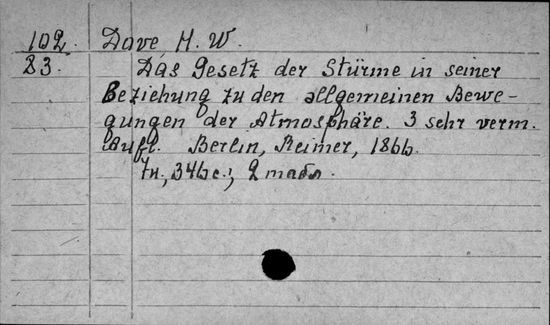 102. Dove, H. W.
23. Das Gesetz der Stürme in seiner
Beziehung zu den allgemeinen Bewe-
gungen der Atmosphäre. 3 sehr verm.
Aufl. Berlin, Reimer, 1866.
346 c., 2 табл.